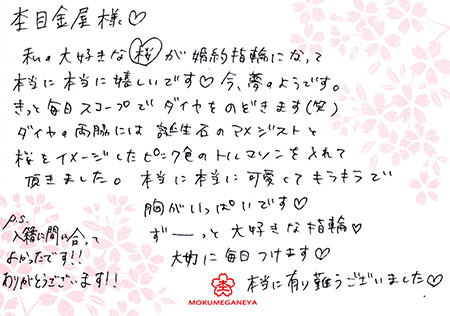 杢目金屋 様♡
私の大好きな 桜 が 婚約指輪になって
本当に本当に嬉しいです♡ 今、夢のようです。
きっと毎日スコープで ダイヤをのぞきます(笑)
ダイヤの両脇には 誕生石のアメジストと
桜をイメージしたピンク色のトルマリンを入れて
頂きました。本当に本当に可愛くてキラキラで
胸がいっぱいです♡
ずーーっと 大好きな指輪♡
大切に毎日つけます♡
本当に有り難うございました♡
p.s.
入籍に間に合って
よかったです!!
ありがとうございます!!
MOKUMEGANEYA